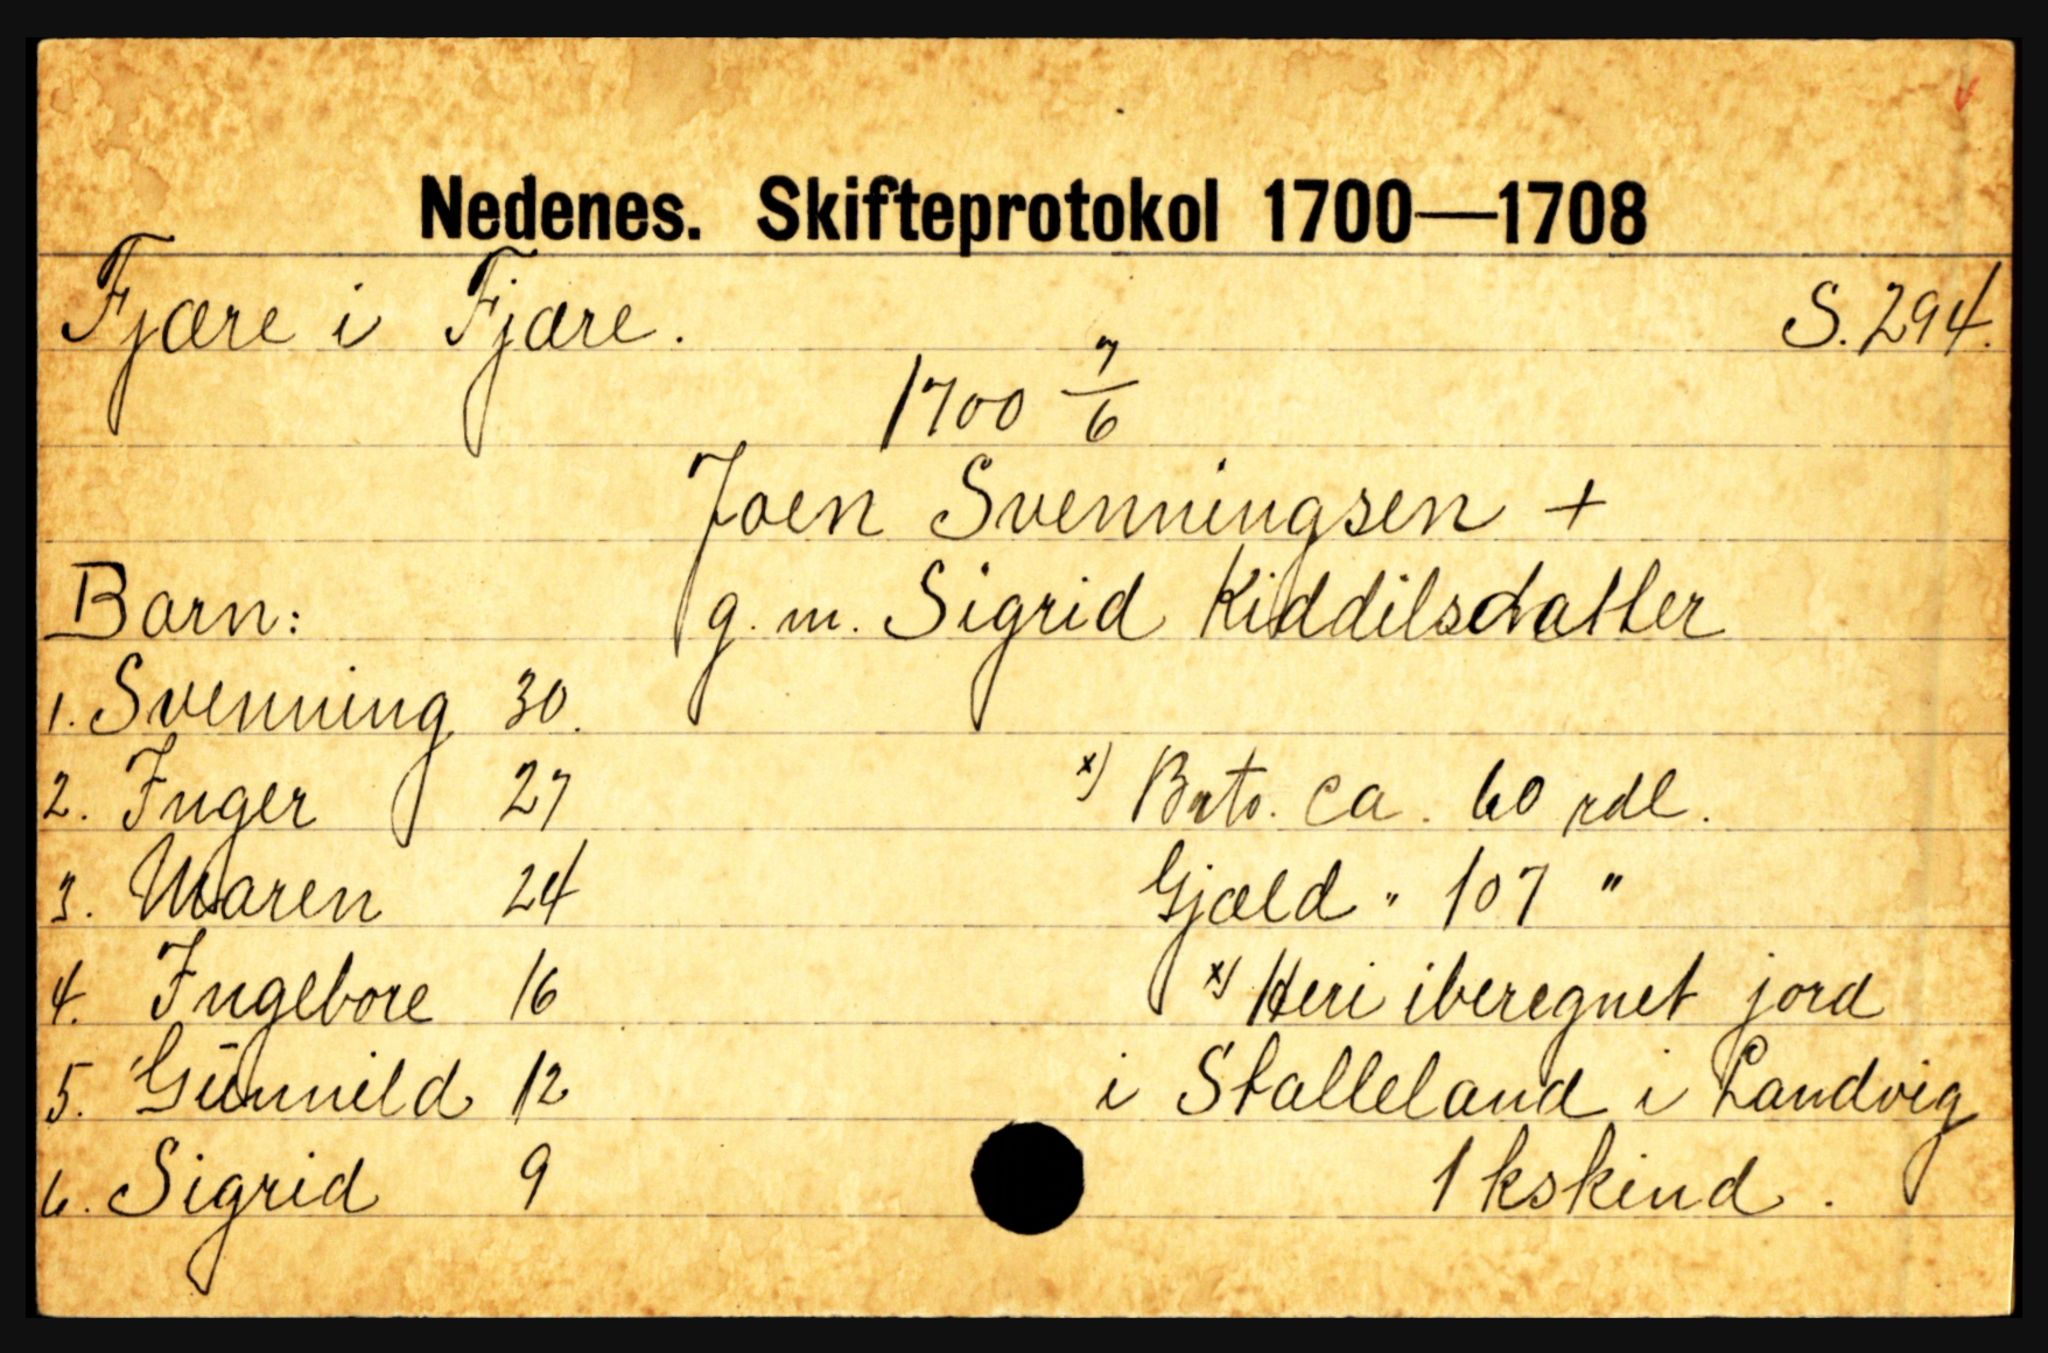 Nedenes. Skifteprotokol 1700—1708
Fjære i Fjære. S. 294.
1700 7/6
Joen Svenningsen +
g. m. Sigrid Kiddilsdatter
Barn:
1. Svenning 30.
2. Inger 27
3. Maren 24
4. Ingebore 16
5. Gunnild 12
6. Sigrid 9
x) Bruto. ca. 60 rdl.
Gjæld " 107 "
x) Heri iberegnet jord
i Stalleland i Landvig
1 kskind.